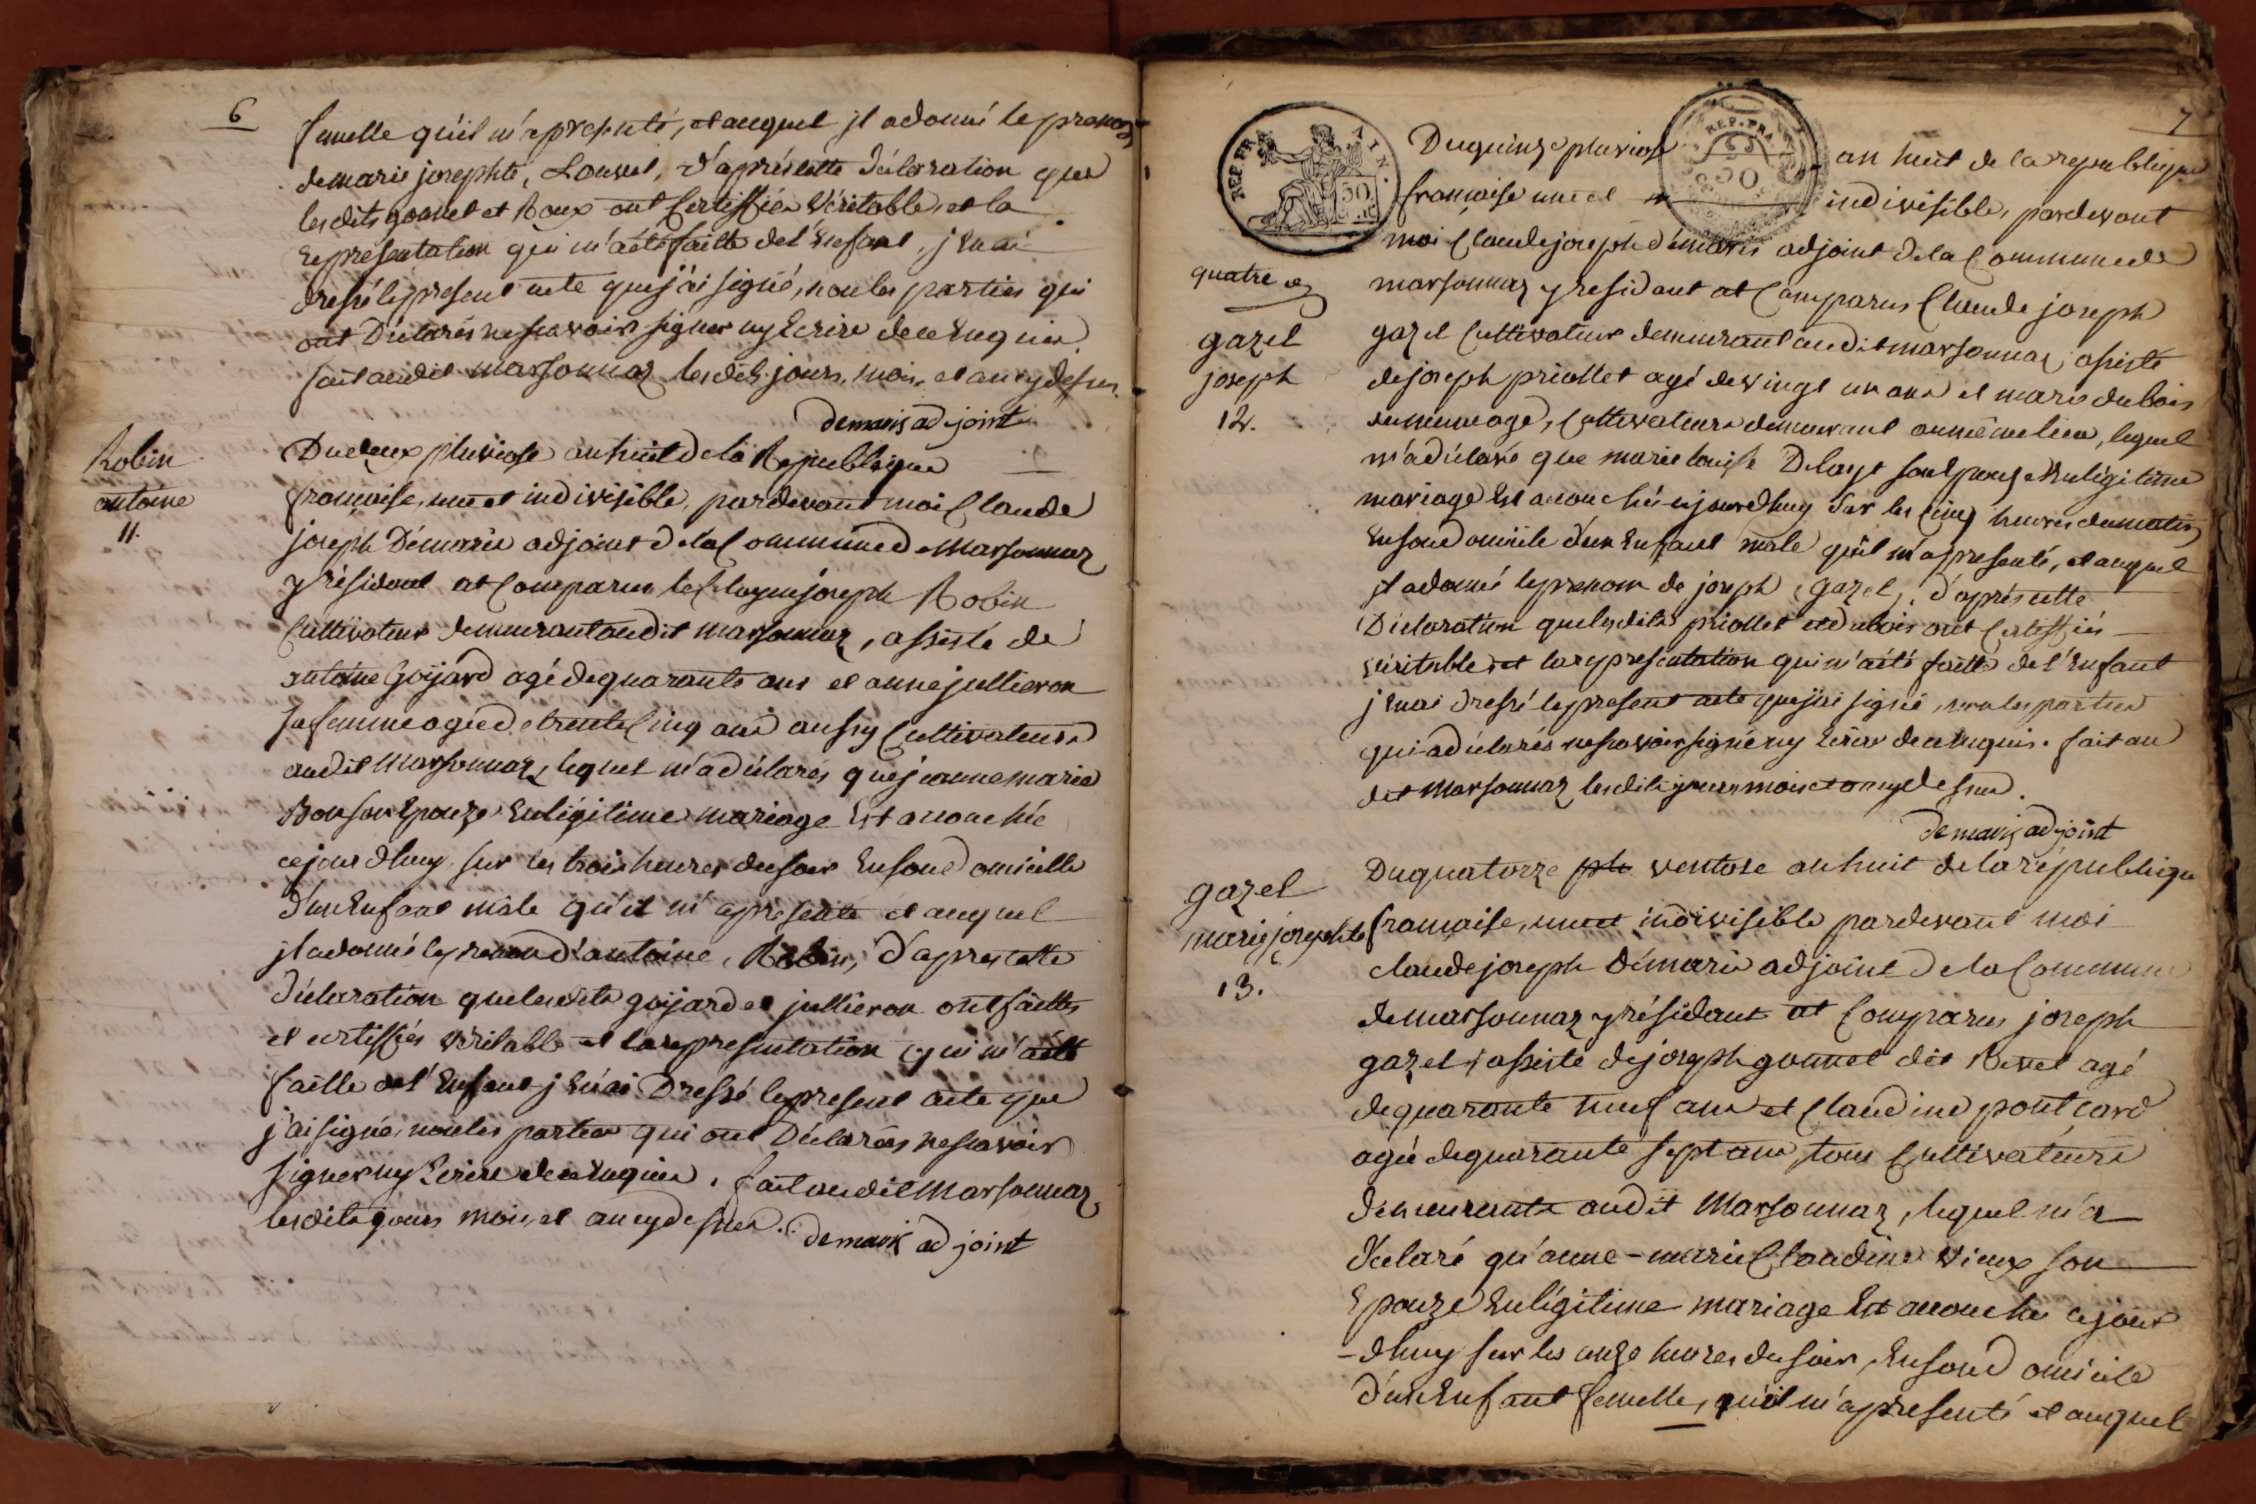 6
femelle qu'il m'a presenté, et auquel jl a donné le prenom
de marie josephte, Louvel, d'après cette déclaration que
lesdits gonnet et Roux ont Certiffiés Véritable, et la
representation qui m'a été faitte del'Enfant, j'en ai
dressé le present acte que j'ai signé, non les parties qui
ont Déclarés ne scavoir signer ny Ecrire de ce Enquis.
fait audit marsonnaz lesdits jours, mois, et an cy dessus.
demaris adjoint
Robin
antoine
11.
Du deux pluviose an huit de la Republique
francaise, une et indivisible, pardevant moi Claude
joseph Démaris adjoint de la Commune de Marsonnaz
y résidant at Comparus le Citoyen joseph Robin
Cultivateur demeurant audit marsonnaz, assisté de
antoine Goÿard agé de quarante ans et anne jullieron
sa femme agée de trente Cinq ans aussy Cultivateurs
audit Marsonnaz, lequel m'a déclarés que jeanne marie
Bon son Epouze En légitime mariage Est accouchée
ce jourdhuy sur les trois heures du soir En son domicille
d'un Enfant mâle qu'il m'a presenté et auquel
jl a donné le prenom d'antoine, Robin, d'apres cette
déclaration que lesdits goÿard et jullieron ont faittes
et certiffiés véritable et la representation qui m'a été
faitte del'Enfant j'En ai Dressé le present acte que
j'ai signé, non les parties qui ont Déclarés ne scavoir
signer ny Ecrire de ce Enquis. fait audit Marsonnaz
lesdits jours mois, et an cy dessus. demaris adjoint
7
REP. FRA.
50
REP. FRA.
50
Du quinze pluviose an huit de la republique
francaise une et indivisible, pardevant
moi Claude joseph démaris adjoint de la Commune de
quatre
marsonnaz y residant at Comparus Claude joseph
gazel
joseph
12.
gazel Cultivateur demeurant audit marsonnaz, assisté
de joseph priollet agé de vingt un ans et marie dubois
du meme age, Cultivateurs demeurant au même lieu, lequel
m'a déclaré que marie louise Delaye son Epouze En légitime
mariage Est accouchée cejourdhuy sur les Cinq heures du matin
En son domicile d'un Enfant mâle qu'il m'a presenté, et auquel
jl a donné le prenom de joseph, gazel, d'après cette
Déclaration que lesdits priollet et dubois ont Certiffiés
véritable, et la representation qui m'a été faitte de l'Enfant
j'En ai dressé le present acte que j'ai signé, non les parties
qui a déclarés ne scavoir signé ny Ecrire de ce Enquis. fait au
dit Marsonnaz lesdits jours mois et an cy dessus.
demaris adjoint
gazel
marie josephte
13.
Du quatorze plu ventose an huit de la république
francaise, une et indivisible pardevant moi
claude joseph Démaris adjoint de la Commune
de marsonnaz y résidant at Comparus joseph
gazel, assisté de joseph gonnet dit Revel agé
de quarante neuf ans et Claudine pontçard
agée de quarante sept ans, tous Cultivateurs
demeurants audit Marsonnaz, lequel m'a
déclaré qu'anne-marie Claudine vieux son
Epouze En légitime mariage Est accouchée cejour
-dhuy sur les onze heures du soir, En son domicile
d'un Enfant femelle, qu'il m'a presenté et auquel